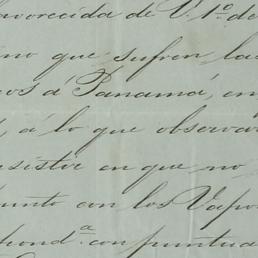 favorecida de V. 1º. de
no que sufren las
os á Panamá, en
, á lo que observar
sistir en que no
punto con los Vapo
hond.ª con puntua